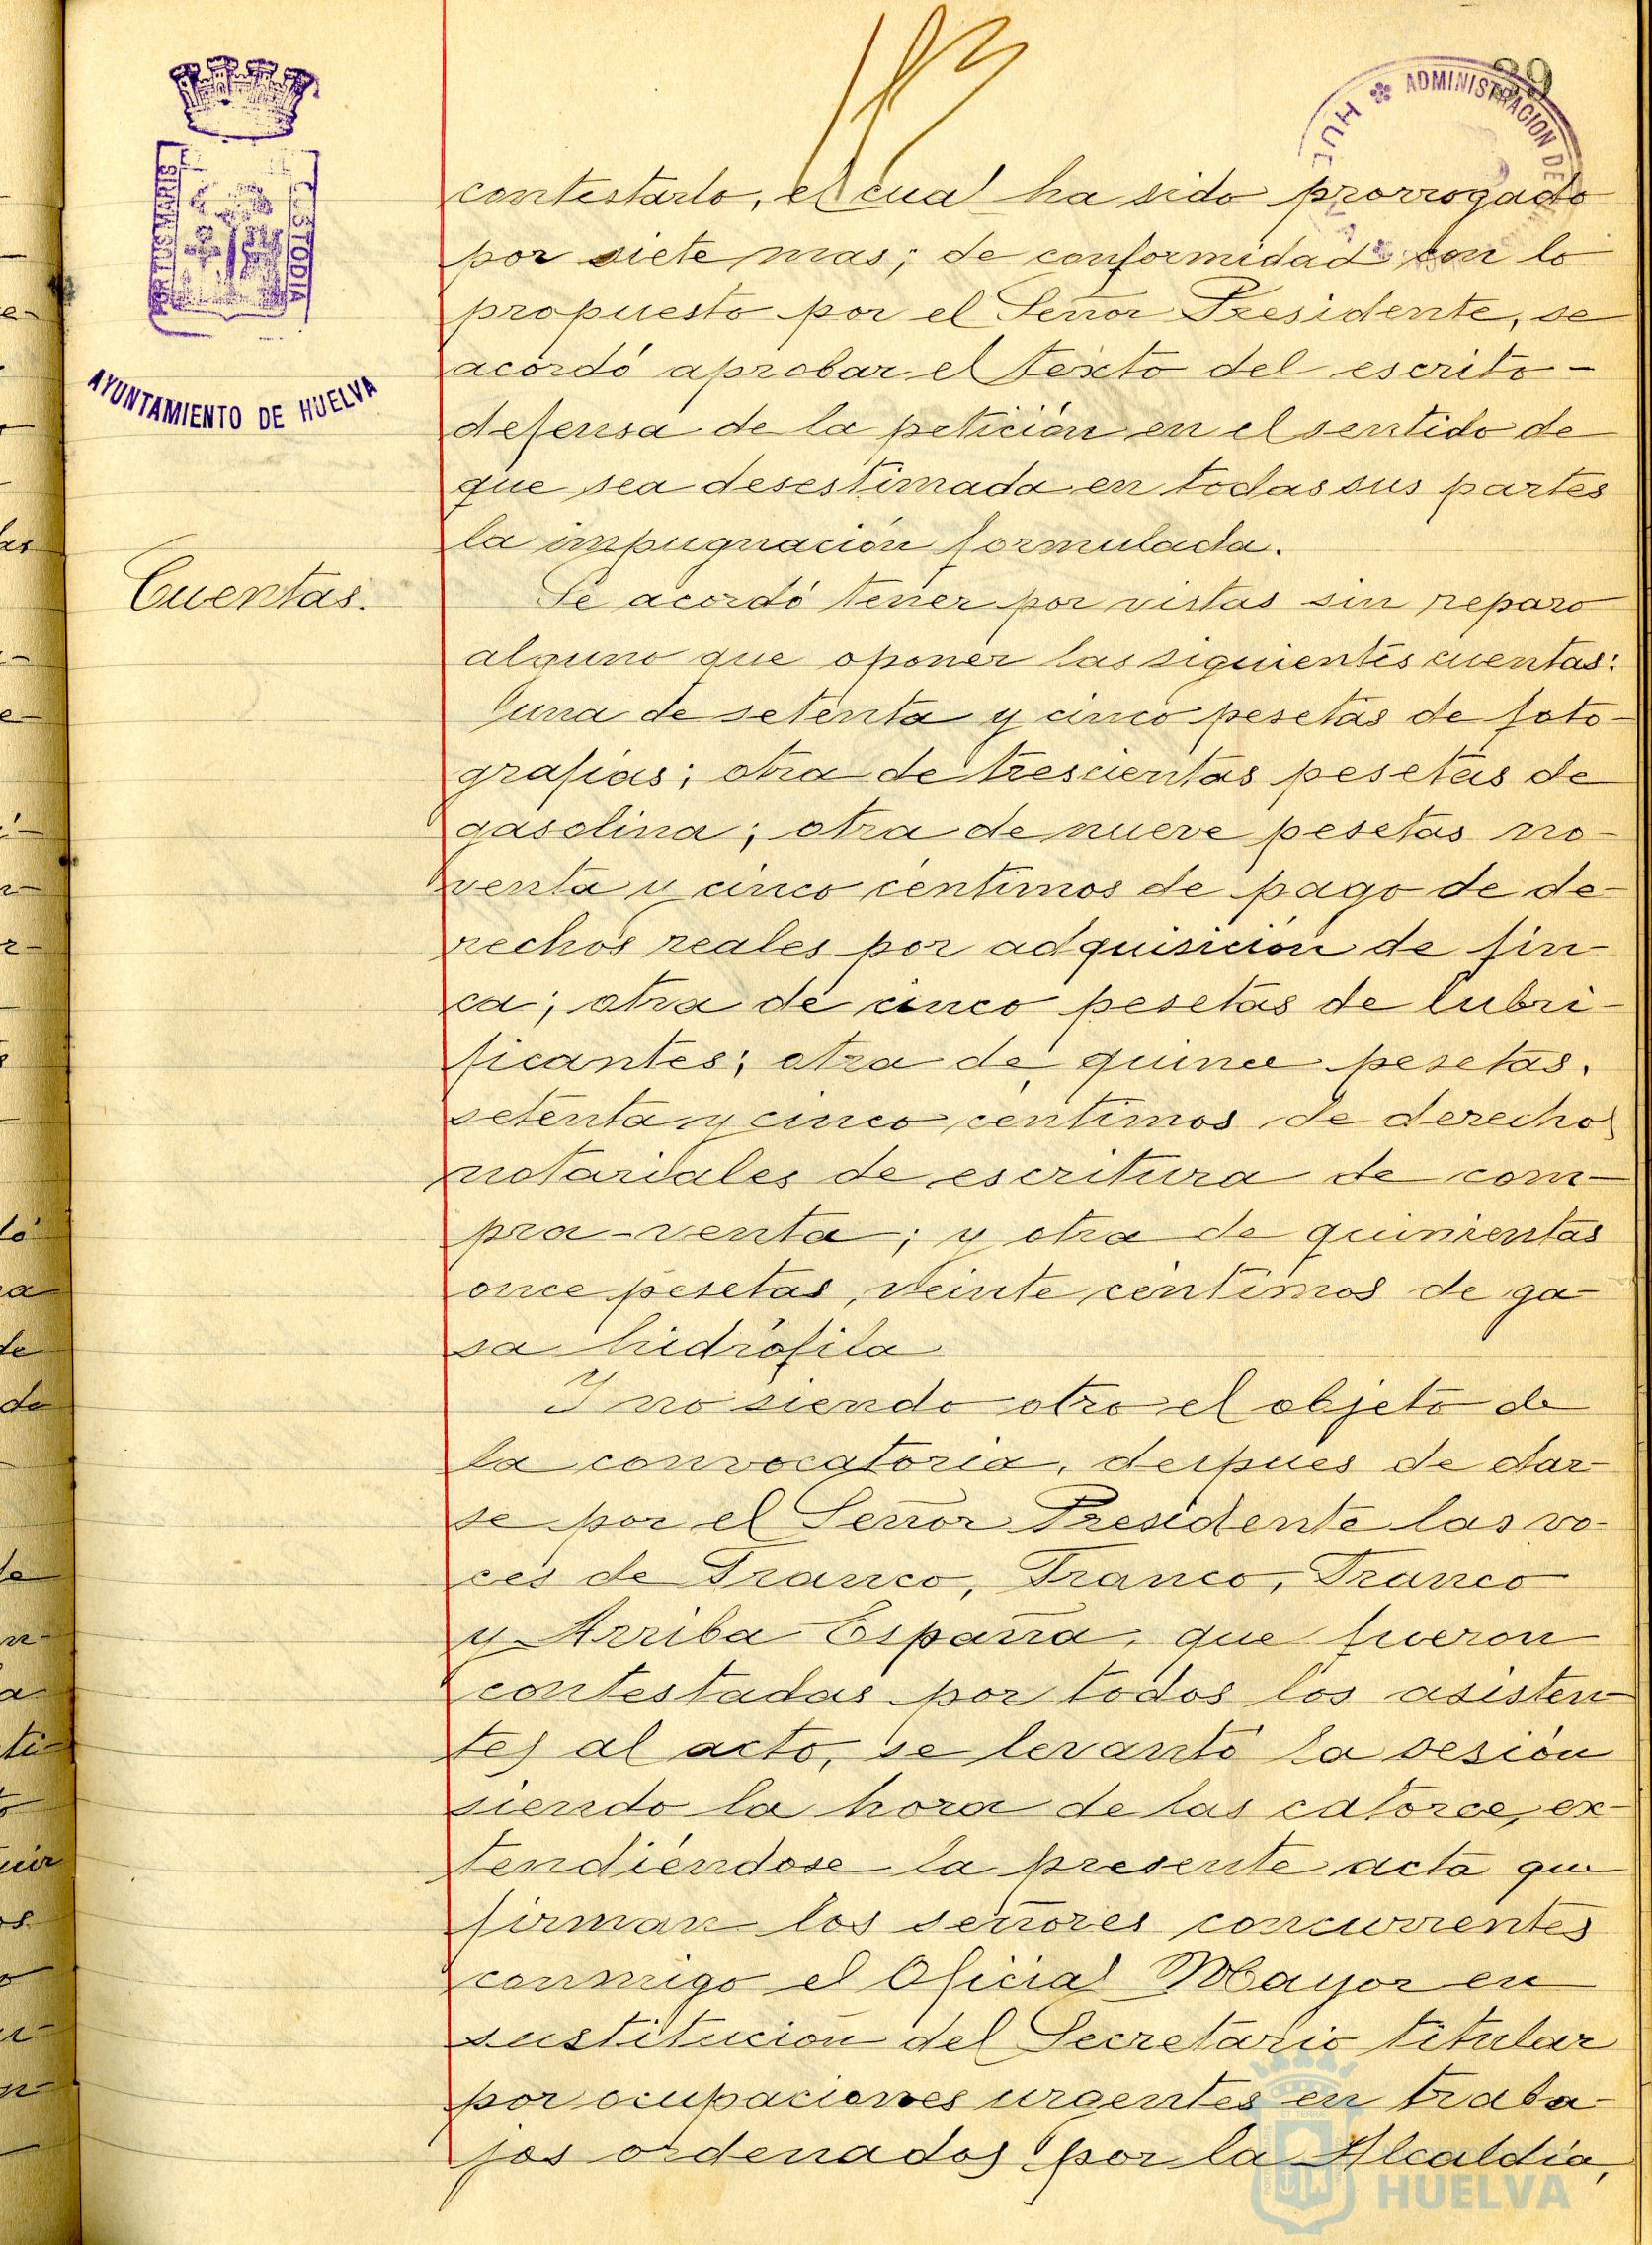 39
ADMINISTRACION DE
HUELVA
PORTUS MARIS
CUSTODIA
AYUNTAMIENTO DE HUELVA
contestarlo, el cual ha sido prorrogado
por siete mas; de conformidad con lo
propuesto por el Señor Presidente, se
acordó aprobar el texto del escrito-
defensa de la petición en el sentido de
que sea desestimada en todas sus partes
la impugnación formulada.
Cuentas.
Se acordó tener por vistas sin reparo
alguno que oponer las siguientes cuentas:
una de setenta y cinco pesetas de foto-
grafías; otra de trescientas pesetas de
gasolina; otra de nueve pesetas no-
venta y cinco céntimos de pago de de-
rechos reales por adquisición de fin-
ca; otra de cinco pesetas de lubri-
ficantes; otra de quince pesetas,
setenta y cinco centimos de derechos
notariales de escritura de com-
pra-venta; y otra de quinientas
once pesetas, veinte céntimos de ga-
sa hidrófila
Y no siendo otro el objeto de
la convocatoria, despues de dar-
se por el Señor Presidente las vo-
ces de Franco, Franco, Franco
y Arriba España, que fueron
contestadas por todos los asisten-
tes al acto, se levantó la sesión
siendo la hora de las catorce, ex-
tendiéndose la presente acta que
firman los señores concurrentes
conmigo el Oficial Mayor en
sustitución del Secretario titular
por ocupaciones urgentes en traba-
jos ordenados por la Alcaldía,
HUELVA